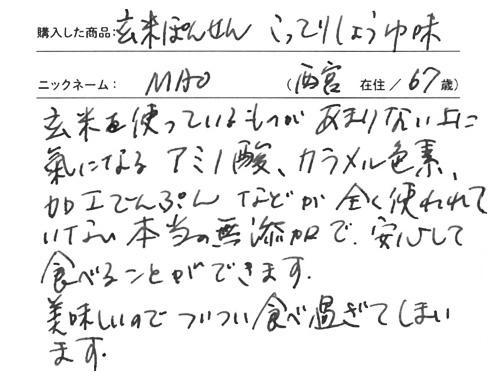 購入した商品: 玄米ぽんせん こってりしょうゆ味
ニックネーム: MAO (西宮 在住 / 67歳)
玄米を使っているものがあまりない上に
氣になるアミノ酸、カラメル色素、
加工でんぷん などが 全く使われて
いない 本当の無添加で、安心して
食べることができます。
美味しいので ついつい食べ過ぎてしまい
ます。